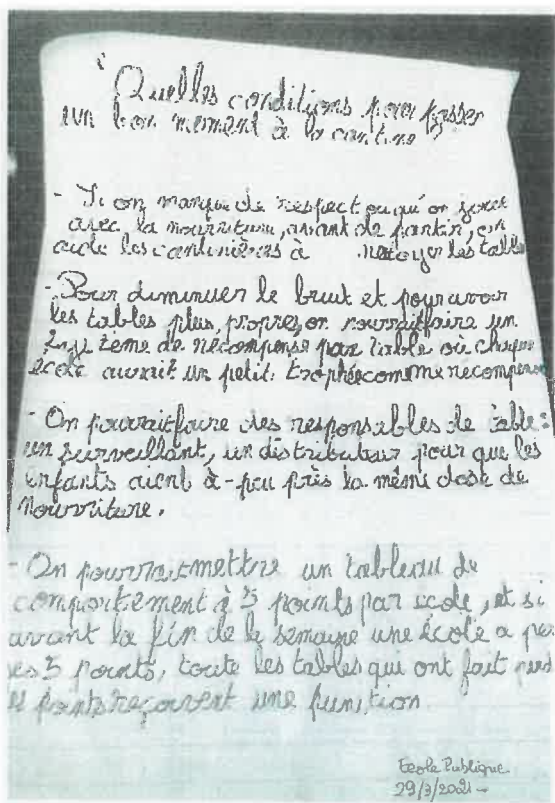 "Quelles conditions pour passer
un bon moment à la cantine ?
- Si on manque de respect ou qu'on joue
avec la nourriture, avant de partir, on
aide les cantinières à nettoyer les table
- Pour diminuer le bruit et pour avoir
les tables plus propres, on pourrait faire un
système de récompense par table où chaque
école aurait un petit trophée comme recompense
- On pourrait faire des responsables de table :
un surveillant, un distributeur pour que les
enfants aient à-peu près la même dose de
nourriture.
- On pourrait mettre un tableau de
comportement à 5 points par école, et si
avant la fin de la semaine une école a per
ses 5 points, toute les tables qui ont fait perd
points reçoivent une punition
Ecole Publique
29/3/2021